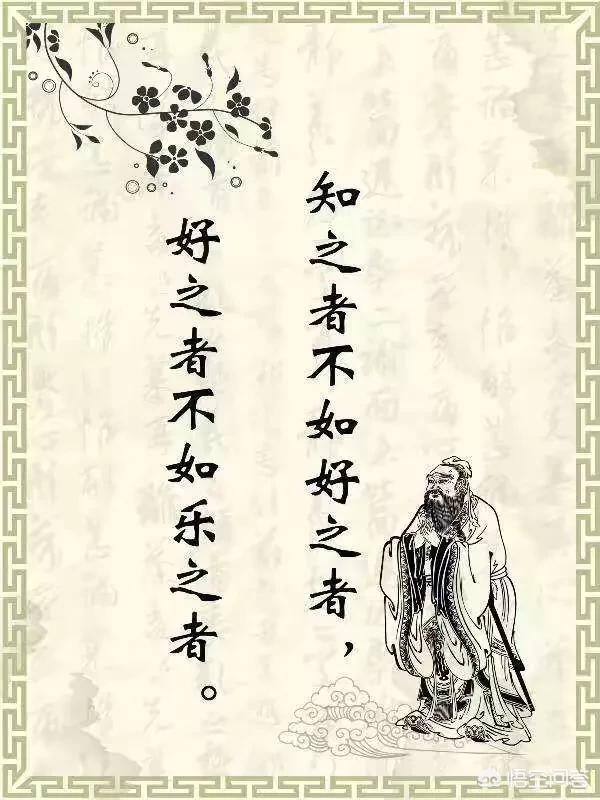 知之者不如好之者，
好之者不如乐之者。
悟空问答